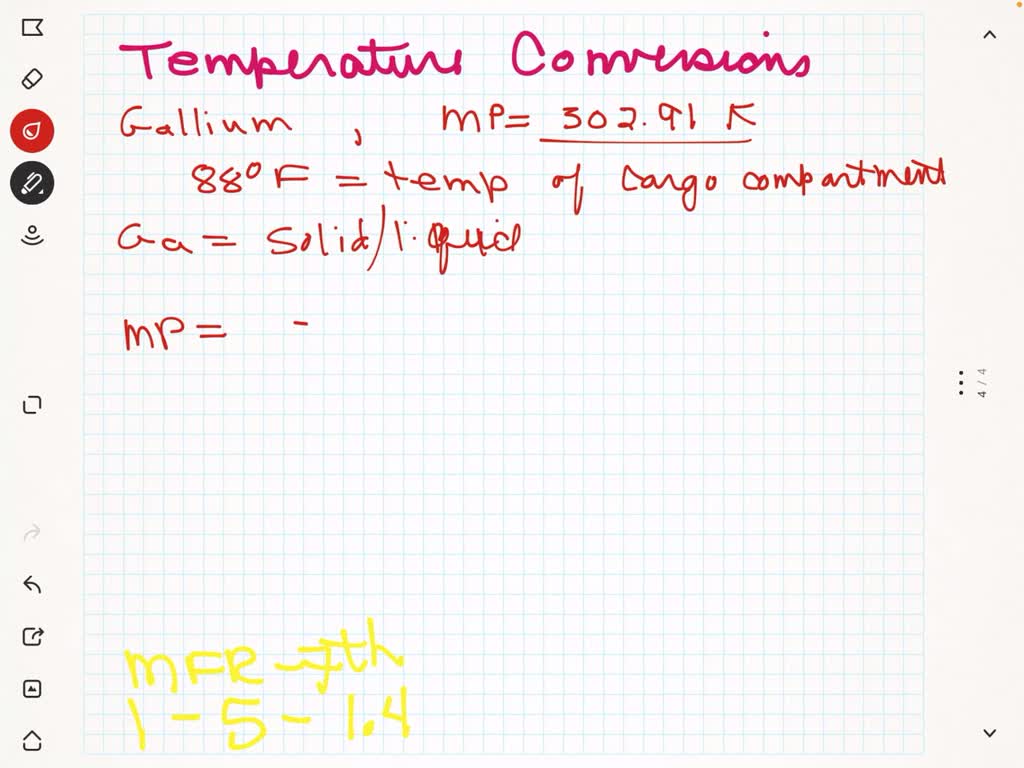 Temperature Conversions
Gallium , MP= 302.91 K
88°F = temp of cargo compartment
Ga = Solid/liquid
MP = -
4 / 4
MFR - 7th
1 - 5 - 1.4